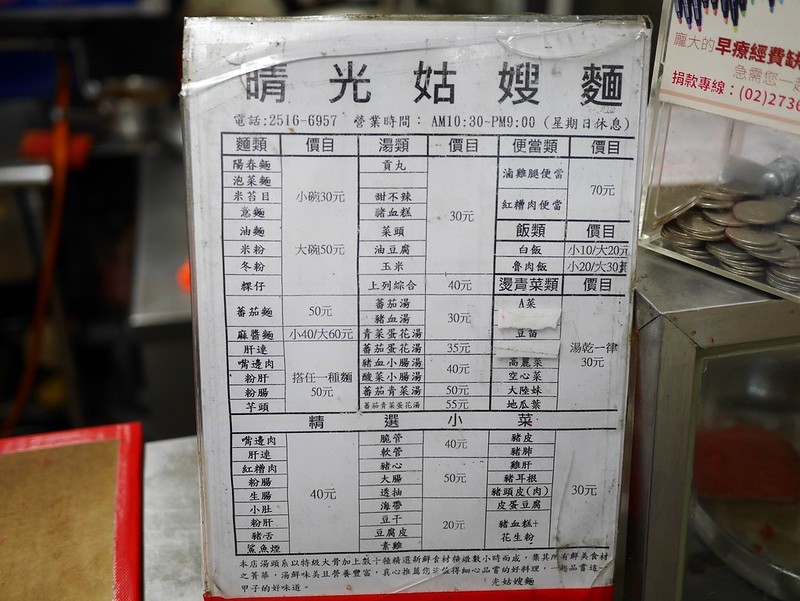 晴光姑嫂麵
電話:2516-6957 營業時間： AM10:30~PM9:00 (星期日休息)
麵類 價目 湯類 價目 便當類 價目
陽春麵
泡菜麵
米苔目
意麵
油麵
米粉
冬粉
粿仔
小碗30元
大碗50元
蕃茄麵 50元
麻醬麵 小40/大60元
肝連
嘴邊肉
粉肝
粉腸
芋頭
搭任一種麵
50元
貢丸
甜不辣
豬血糕
菜頭
油豆腐
玉米
30元
上列綜合 40元
蕃茄湯
豬血湯
青菜蛋花湯
30元
蕃茄蛋花湯 35元
豬血小腸湯
酸菜小腸湯
40元
蕃茄青菜湯 50元
蕃茄青菜蛋花湯 55元
滷雞腿便當
紅糟肉便當
70元
飯類 價目
白飯 小10/大20元
魯肉飯 小20/大30
燙青菜類 價目
A菜
豆苗
高麗菜
空心菜
大陸妹
地瓜葉
湯乾一律
30元
精選小菜
嘴邊肉
肝連
紅糟肉
粉腸
生腸
小肚
粉肝
豬舌
鯊魚煙
40元
脆管
軟管
40元
豬心
大腸
透抽
50元
海帶
豆干
豆腐皮
素雞
20元
豬皮
豬肺
雞肝
豬耳根
豬頭皮(肉)
皮蛋豆腐
豬血糕+
花生粉
30元
本店湯頭系以特級大骨加上數十種精選新鮮食材條燉數小時而成，集其所有鮮美食材
之菁華，湯鮮味美且營養豐富，真心推薦您
得細心品嘗的好料理，
甲子的好味道。
光姑嫂麵
龐大的早療經費缺
急需您一起
捐款專線：(02)2736